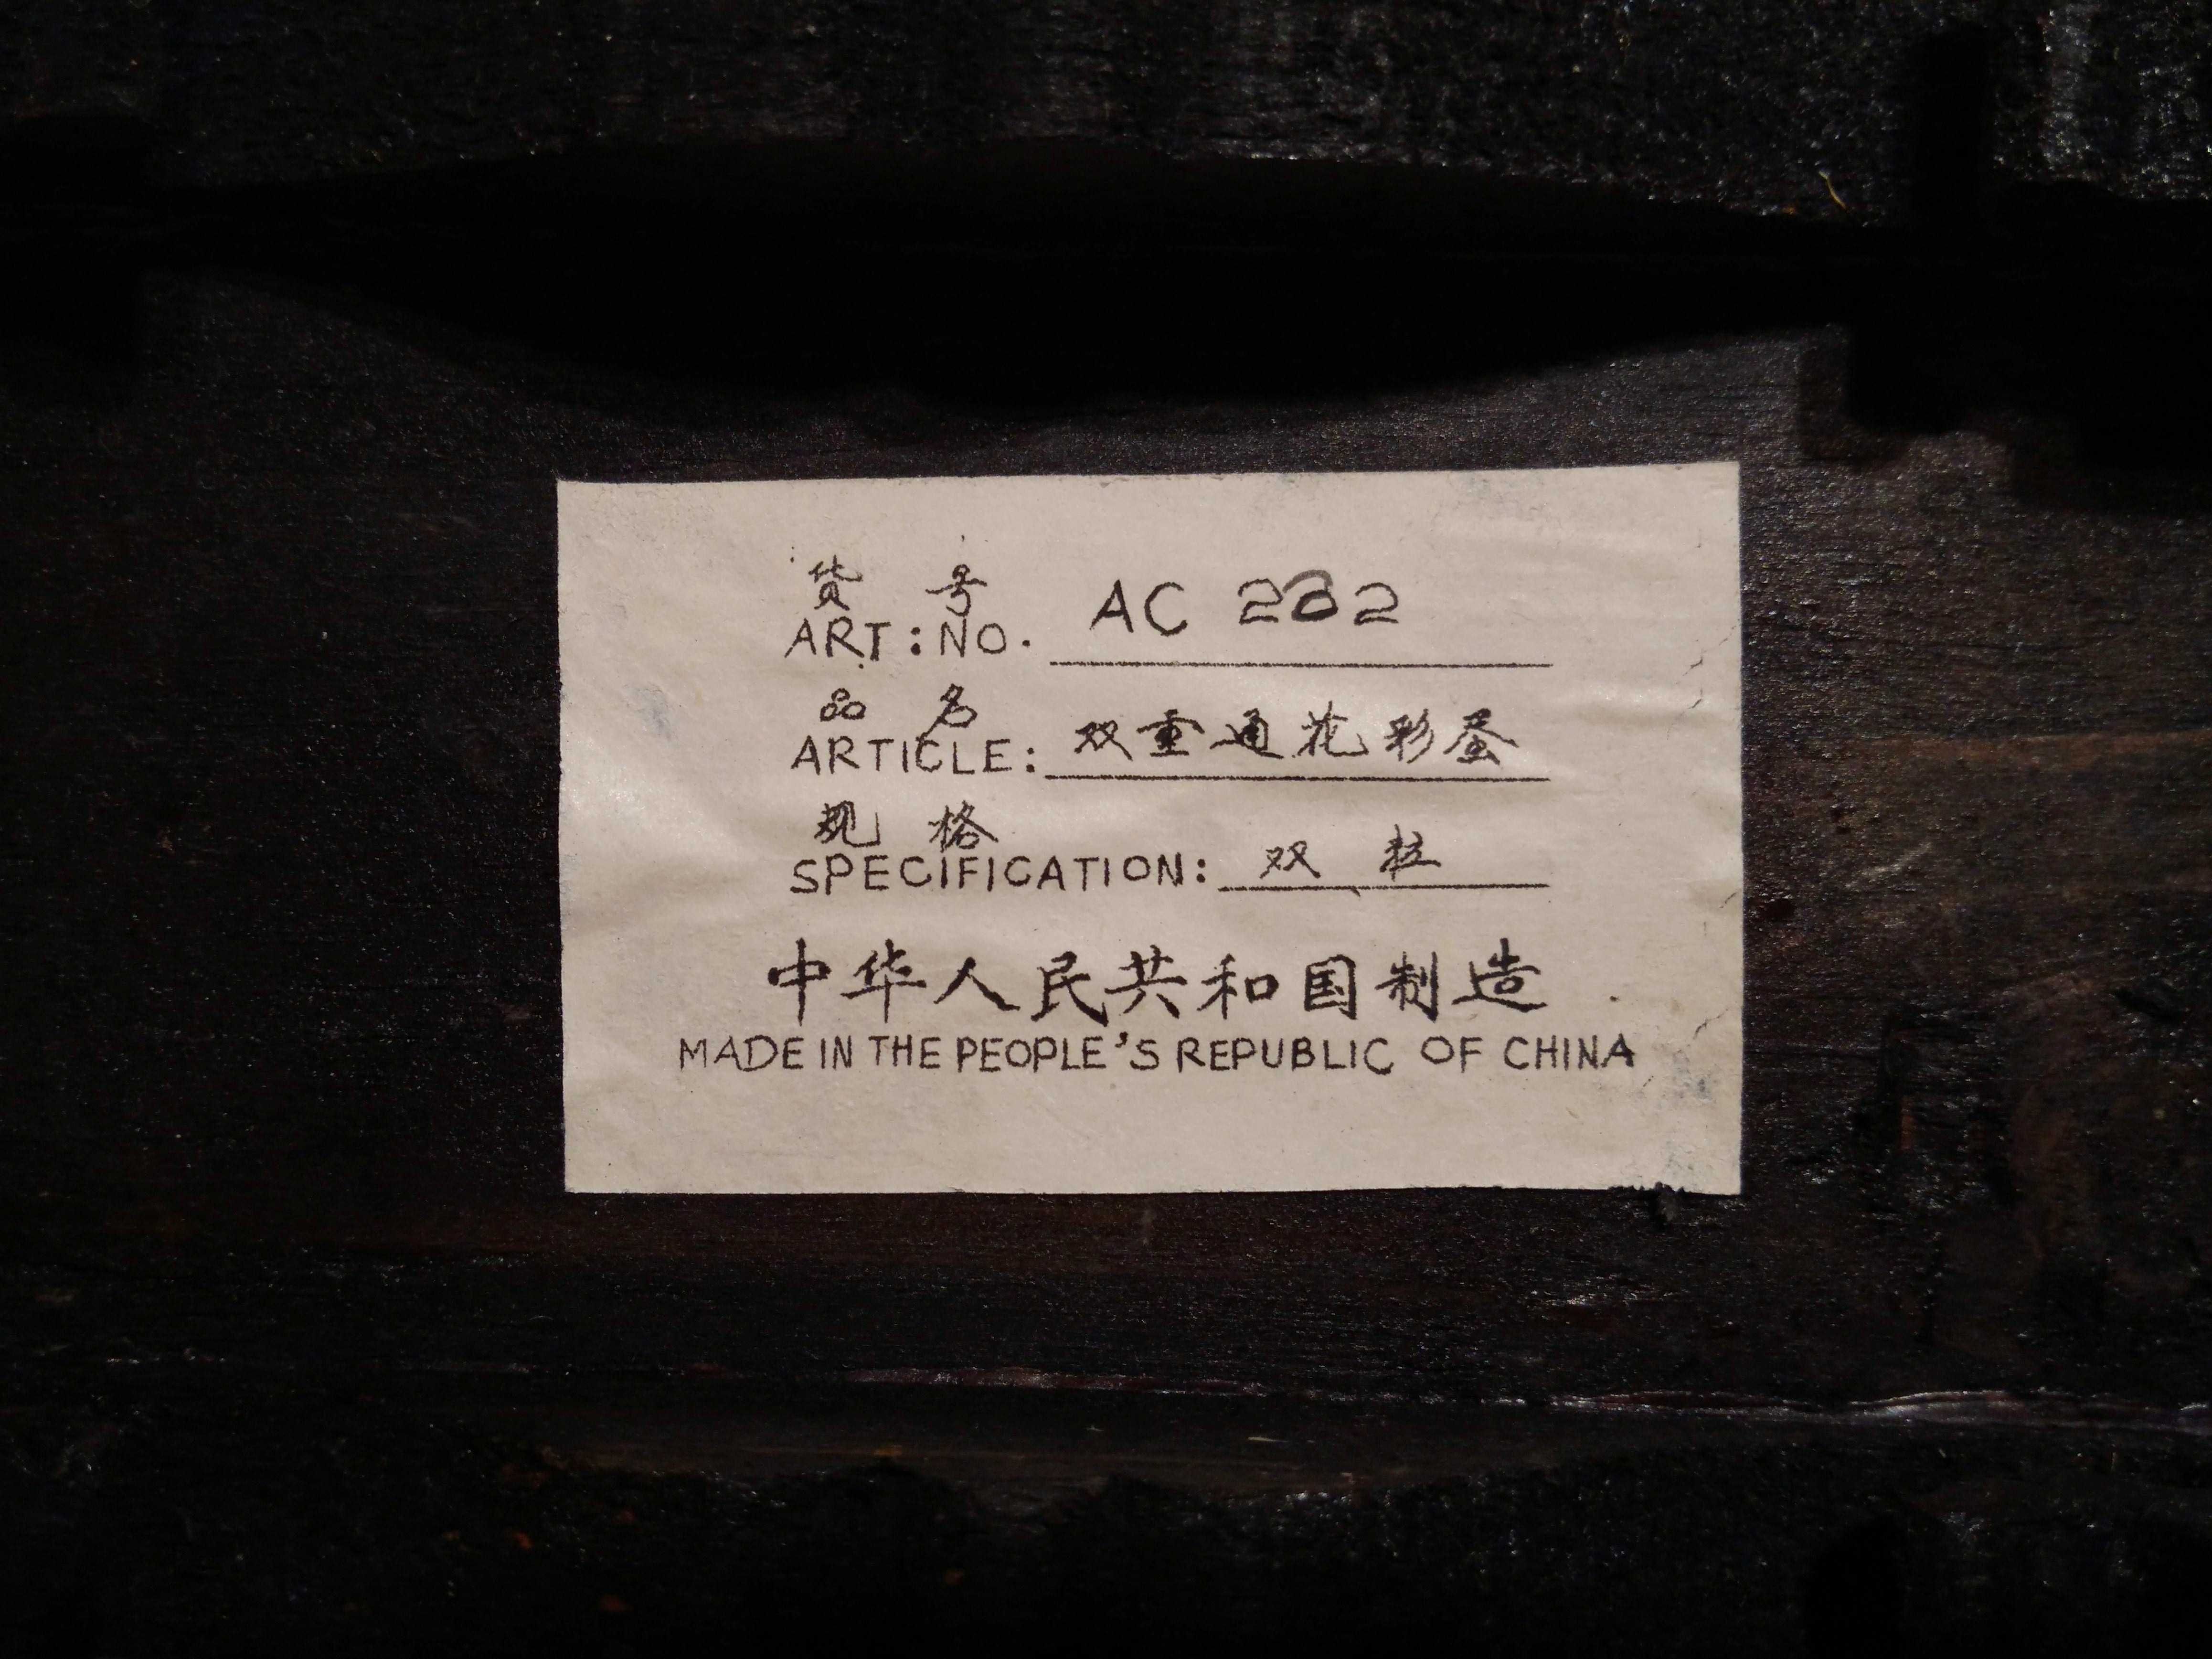 货 号
ART:NO. AC 232
品 名
ARTICLE: 双重通花彩蛋
规 格
SPECIFICATION: 双
中华人民共和国制造
MADE IN THE PEOPLE'S REPUBLIC OF CHINA